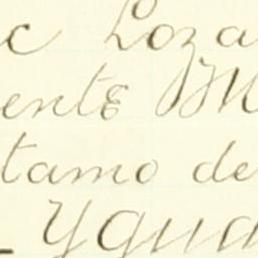 c Loza
ente M
tamo de
Ygua